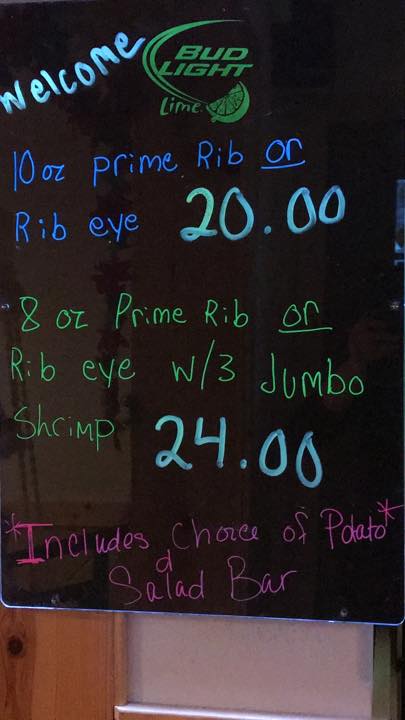 Welcome
BUD
LIGHT
Lime
10 oz prime Rib or
Rib eye 20.00
8 oz Prime Rib or
Rib eye w/3 Jumbo
Shrimp 24.00
*Includes choice of Potato*
d Salad Bar